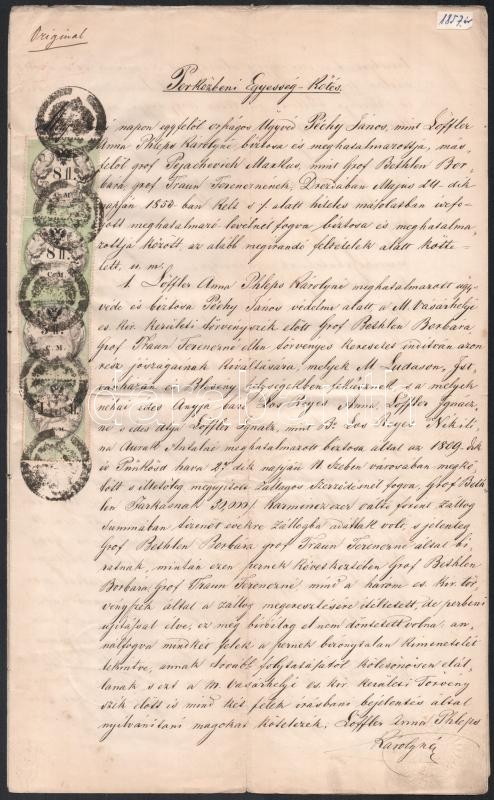 Original
1857. év
Perközbeni Egyesség-kötés.
napon egyfelől országos Ügyvéd Péchy János, mint Löffler
Anna Phleps Károlyné biztosa és meghatalmazottja, más
felől gróf Pejachevich Markus, mint Gróf Bethlen Bor
bára gróf Traun Ferencznének, Drezdában Majus
1850-ban kelt s /. alatt hiteles másolatban
meghatalmazó levelénél fogva biztosa és meghatalma
zottja között, az alább megirandó feltételek alatt kötte
tett, u. m:
1. Löffler Anna Phleps Károlyné meghatalmazott ügy
véde és biztosa Péchy János védelme alatt, a M. Vásárhelyi
cs. kir. kerületi törvényszék előtt Gróf Bethlen Borbára
gróf Traun Ferenczné ellen törvényes keresetet inditván azon
rész jószágainak kiváltására, melyek M. Ludason,
községekben feküsznek, s a melyek
néhai édes Anyja báró Los Reyes Anna, Löffler Ignácz
né s édes Atyja Löffler Ignátz, mint B. Los Reyes
Antalné meghatalmazott biztosa által az 1809. dik
év Pünkösd hava 2dik napján N. Szeben városában megkö
tött s megujitott Zállogos Szerződésnél fogva, Gróf Beth
len Farkasnak harminczezer váltó forint zállog
summában tizenöt évekre zállogba adattak volt, s jelenleg
Gróf Bethlen Borbára gróf Traun Ferenczné által bi
ratnak, miután ezen pernek következtében Gróf Bethlen
Borbára, Gróf Traun Ferenczné, mind a három cs. kir. tör
vényszék által a zállog megeresztésére itéltetett, de perbeni
ujitással élve, ez még biróilag el nem döntetett volna; an,
nálfogva mindkét felek a pernek bizonytalan kimenetelét
tekintve, annak további folytatásától kölcsönösen elál,
lanak s ezt a M. vásárhelyi cs. kir. kerületi Törvény
szék előtt is mind két felek irásbani bejelentés által
nyilvánitani magokat kötelezik;
Löffler Anna Phleps
Károlyné
8 fl.
C. M.
8 fl.
C. M.
darabanth